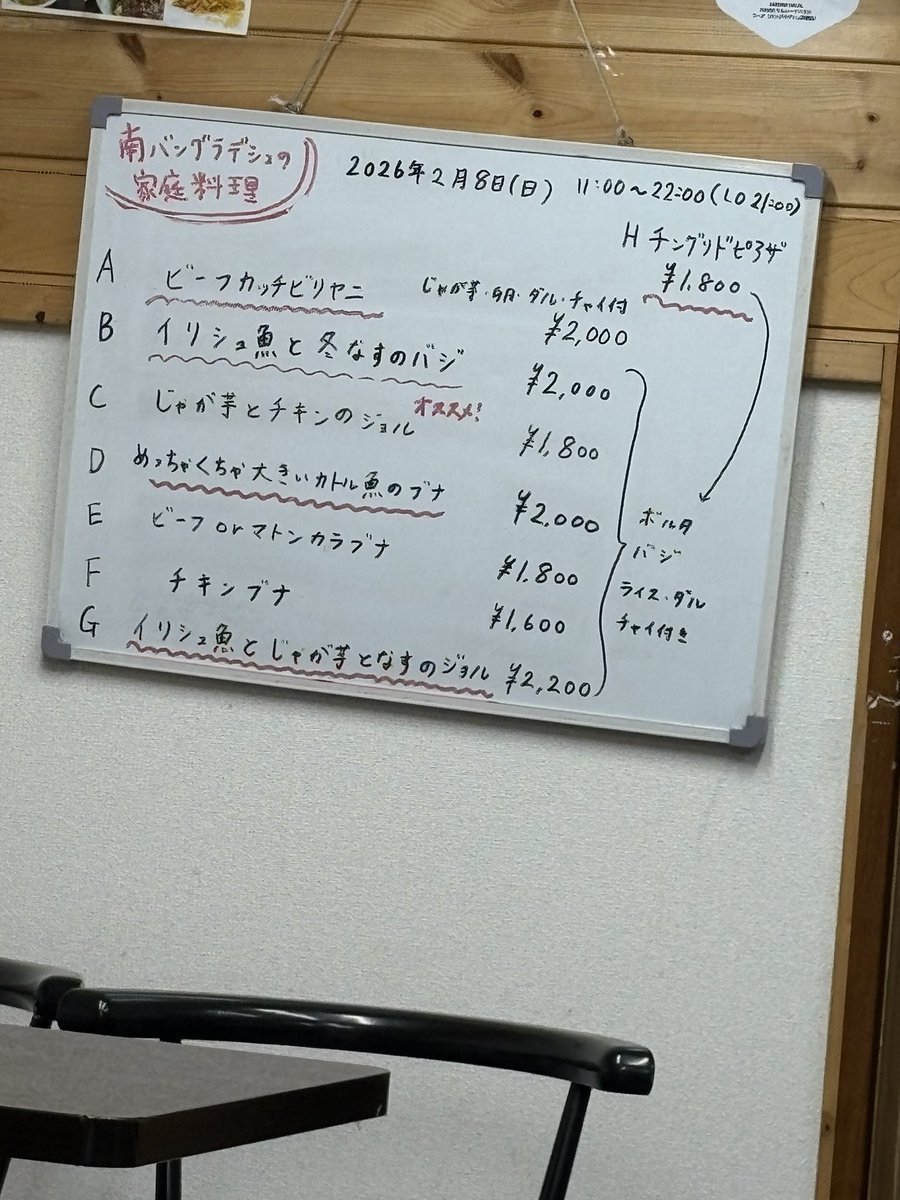 南バングラデシュの
家庭料理
2026年2月8日(日) 11:00〜22:00(LO 21:00)
H チングリドピアザ
¥1.800
A ビーフカッチビリヤニ じゃが芋・卵・ダル・チャイ付
¥2,000
B イリシュ魚と冬なすのバジ ¥2,000
C じゃが芋とチキンのジョル オススメ! ¥1,800
D めっちゃくちゃ大きいカトル魚のブナ ¥2,000
E ビーフorマトンカラブナ ¥1.800
F チキンブナ ¥1,600
G イリシュ魚とじゃが芋となすのジョル ¥2,200
ボルタ
バジ
ライス・ダル
チャイ付き